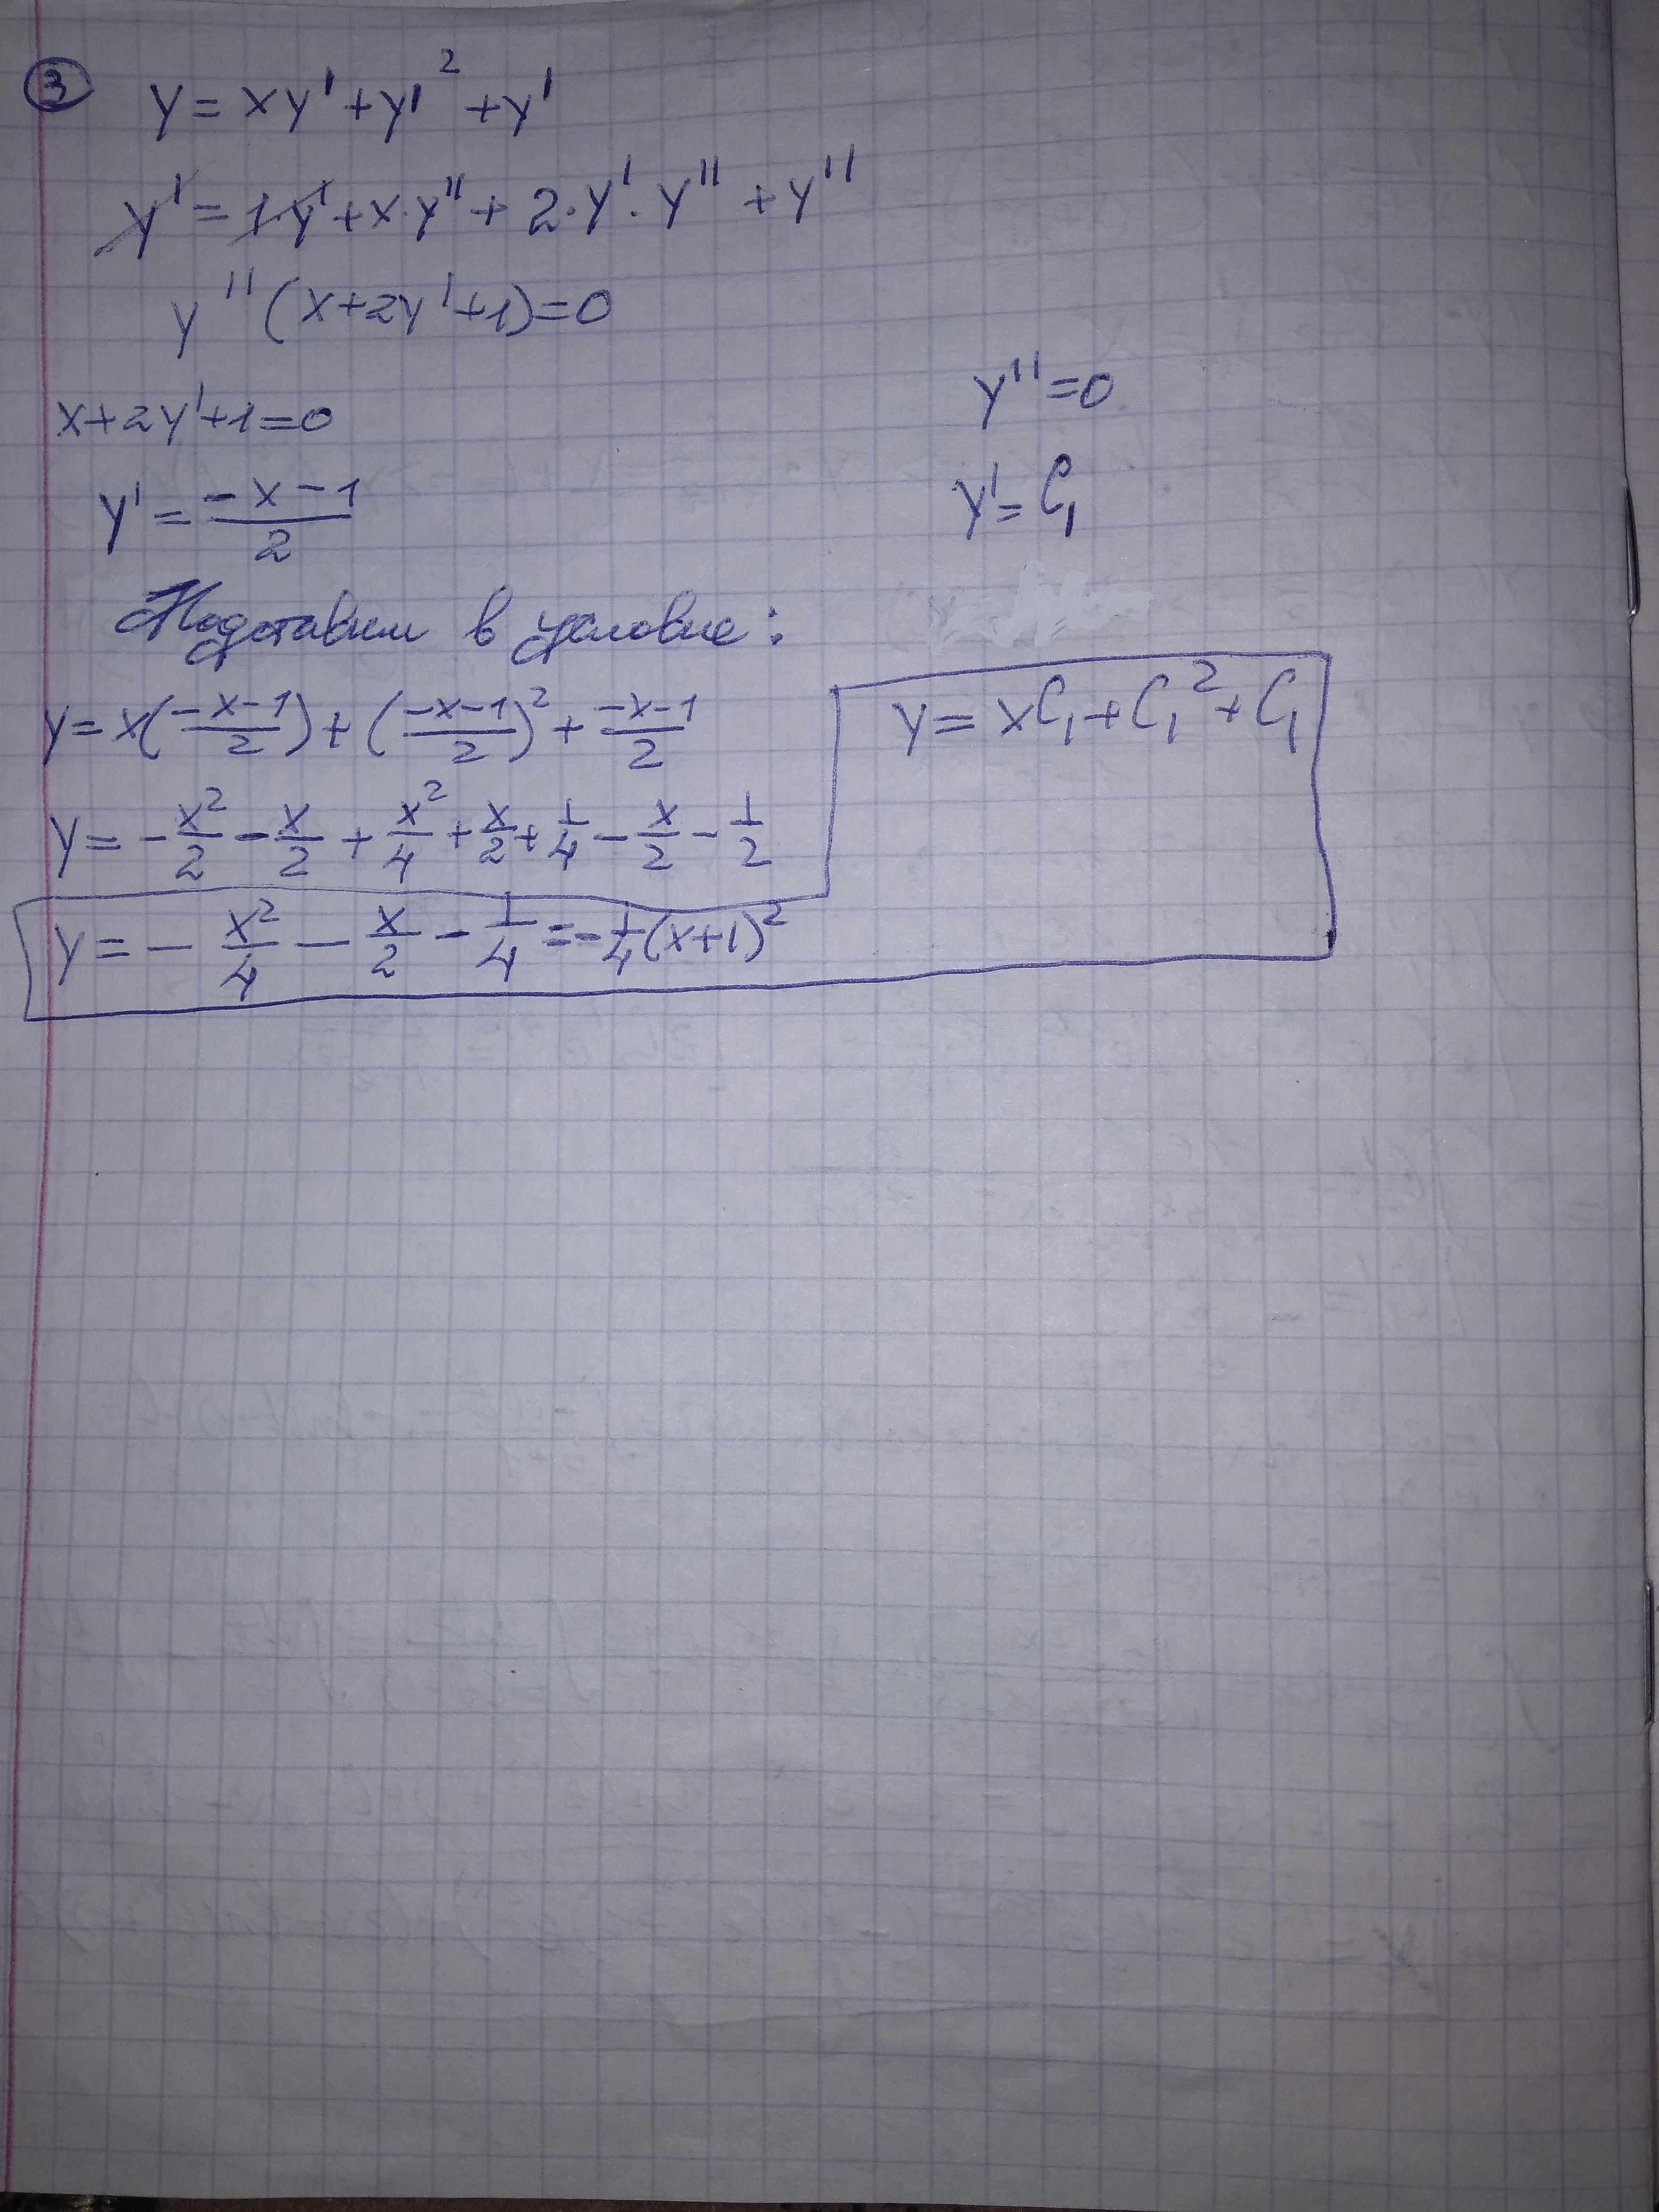 ③ y = xy' + y'² + y'
y' = 1·y' + x·y'' + 2·y'·y'' + y''
y''(x+2y'+1)=0
x+2y'+1=0
y' = (-x-1)/2
Подставим в условие:
y = x((-x-1)/2) + ((-x-1)/2)² + (-x-1)/2
y = -x²/2 - x/2 + x²/4 + x/2 + 1/4 - x/2 - 1/2
y = - x²/4 - x/2 - 1/4 = -1/4(x+1)²
y''=0
y' = C₁
y = xC₁ + C₁² + C₁